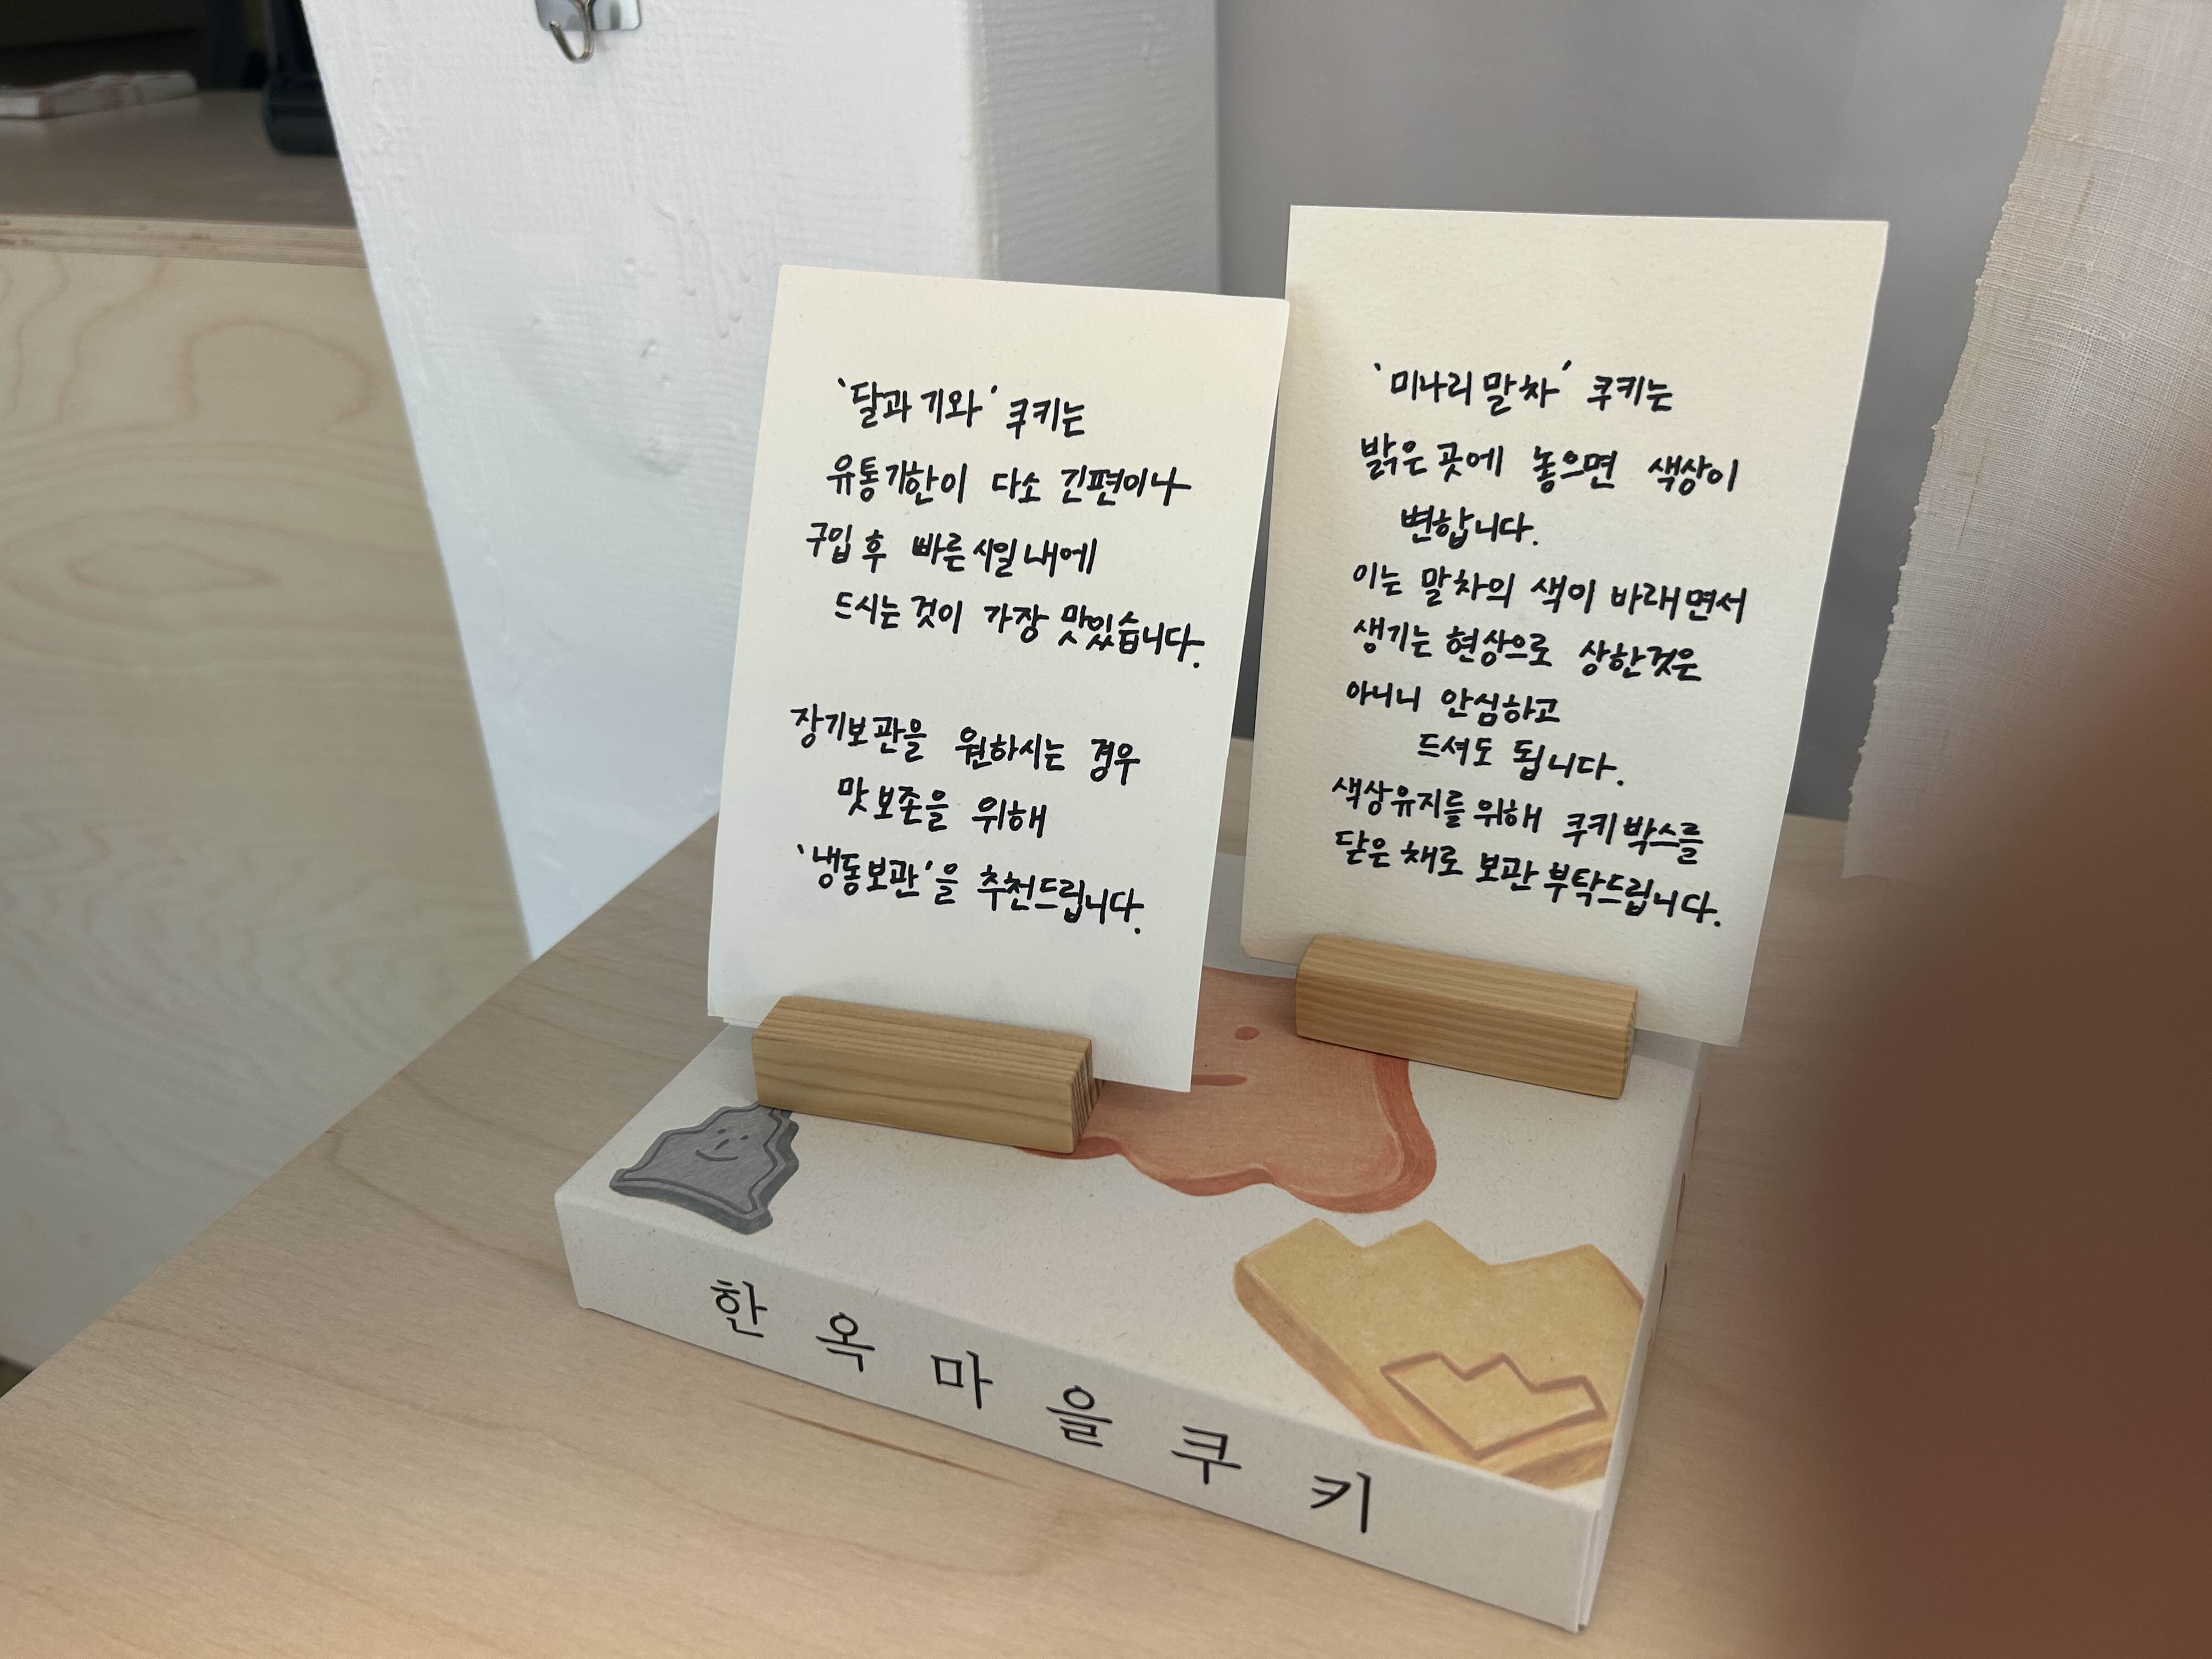 '달과 기와' 쿠키는
유통기한이 다소 긴편이나
구입 후 빠른 시일 내에
드시는 것이 가장 맛있습니다.
장기보관을 원하시는 경우
맛 보존을 위해
'냉동보관'을 추천드립니다.
'미나리 말차' 쿠키는
밝은 곳에 놓으면 색상이
변합니다.
이는 말차의 색이 바래면서
생기는 현상으로 상한것은
아니니 안심하고
드셔도 됩니다.
색상유지를 위해 쿠키 박스를
닫은 채로 보관 부탁드립니다.
한옥마을쿠키